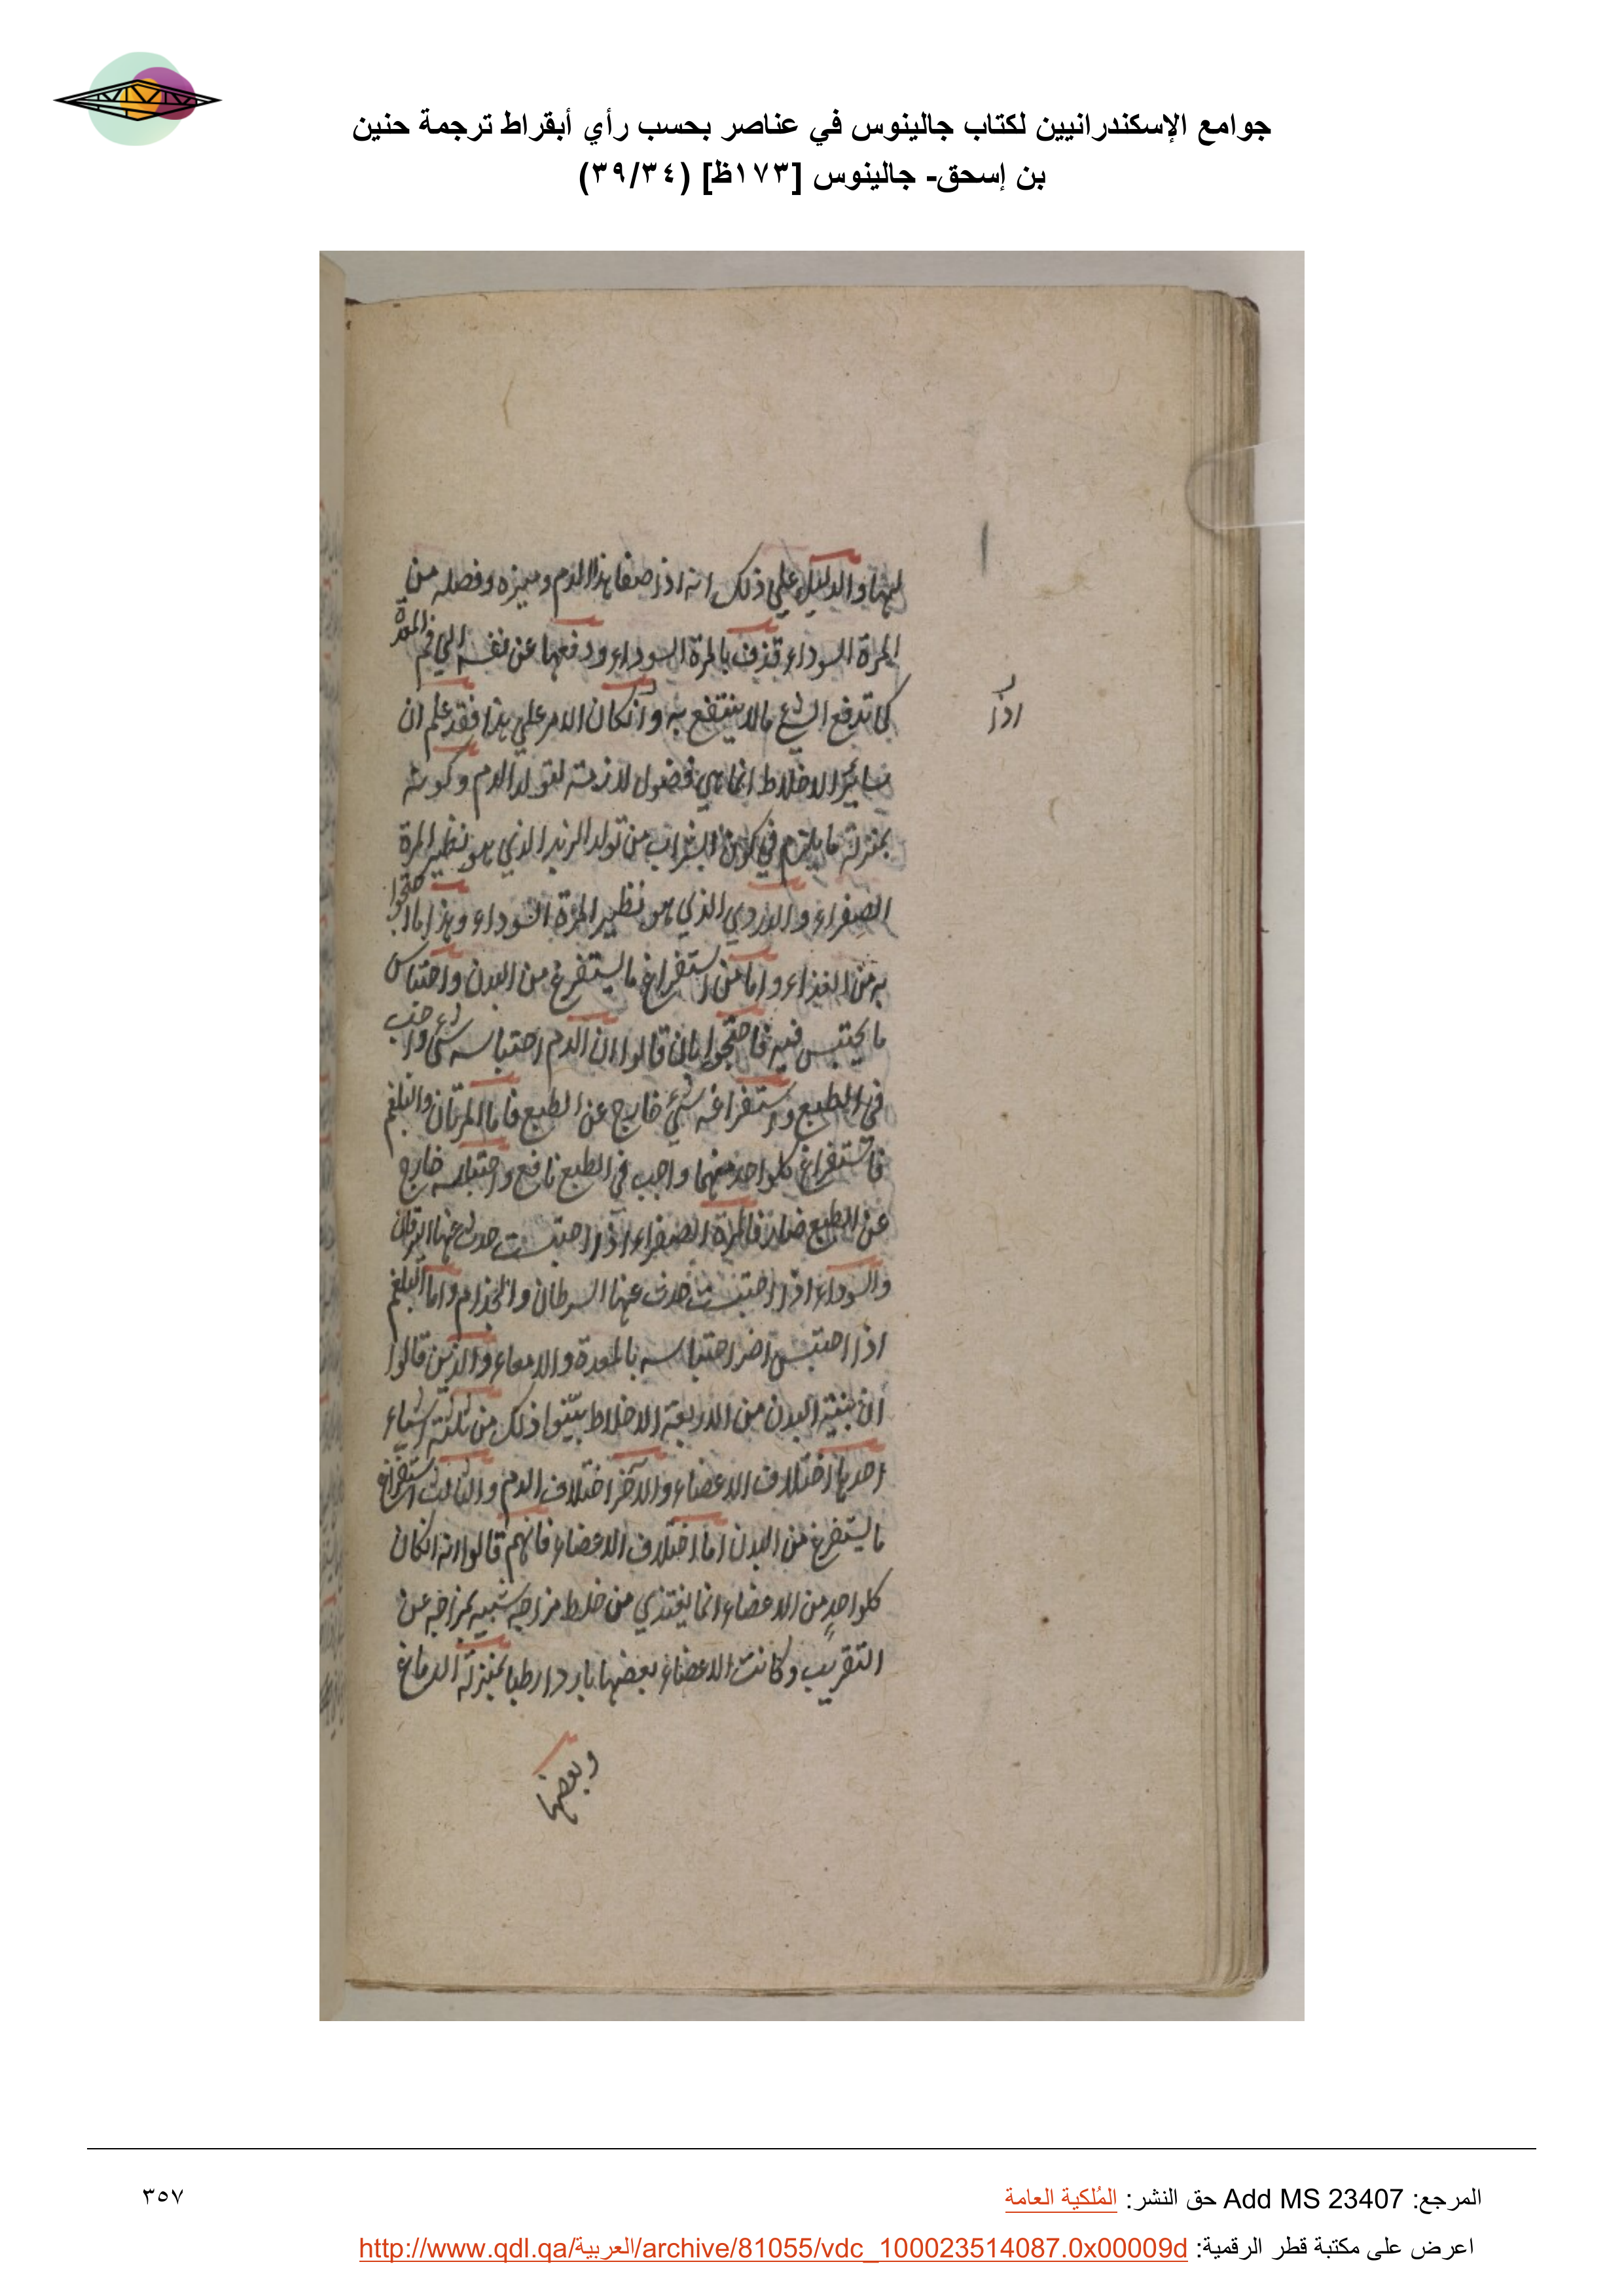 جوامع الإسكندرانيين لكتاب جالينوس في عناصر بحسب رأي أبقراط ترجمة حنين
بن إسحق- جالينوس [١٧٣ظ] (٣٩/٣٤)
لهما والدليل علي ذلك انه اذا صفا هذا الدم وميزه وفصله من
المرة السوداء قذف بالمرة السوداء ودفعها عن نفسه الي فم المعدة
كما تدفع الشيء مالا ينتفع به وانكان الامر علي هذا فقد علم ان
اذا
ساير الاخلاط انما هي فضول لازمة لتولد الدم وكونه
بمنزلة ما يلزم في كون الشراب من تولد الزبد الذي هو نظير المرة
الصفراء والدردي الذي هو نظير المرة السوداء وهذا ما احتجوا
به من الغذاء واما من استفراغ ما يستفرغ من البدن واحتباس
ما يحتبس فيه فاحتجوا بان قالوا ان الدم احتباسه شيء واجب
في الطبع واستفراغه شيء خارج عن الطبع فاما المرتان والبلغم
فاستفراغ كلواحد منهما واجب في الطبع نافع واحتباسه خارج
عن الطبع ضار فالمرة الصفراء اذا احتبست حدث عنها اليرقان
والسوداء اذا احتبست حدث عنها السرطان والجذام واما البلغم
اذا احتبس اضر احتباسه بالمعدة والامعاء والذين قالوا
ان بنية البدن من الاربعة الاخلاط بينوا ذلك من ثلثة اشياء
احدها اختلاف الاعضاء والاخر اختلاف الدم والثالث استفراغ
ما يستفرغ من البدن اما اختلاف الاعضاء فانهم قالوا انه انكان
كلواحد من الاعضاء انما يغتذي من خلط مزاجه شبيه بمزاجه عن
التقريب وكانت الاعضاء بعضها باردا رطبا بمنزلة الدماغ
وبعضها
المرجع: Add MS 23407 حق النشر: المُلكية العامة
٣٥٧
اعرض على مكتبة قطر الرقمية: http://www.qdl.qa/العربية/archive/81055/vdc_100023514087.0x00009d